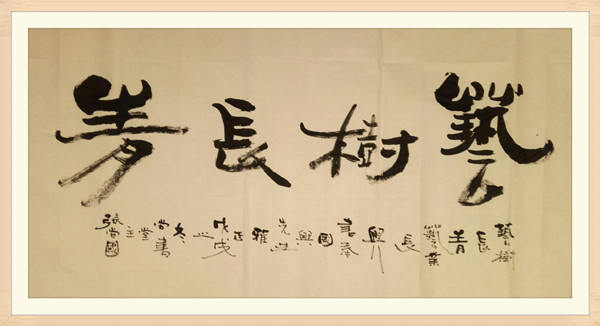 藝樹長青
藝樹長青藝業長興書奉國興先生雅正戊戌之冬尚書堂主張尚國